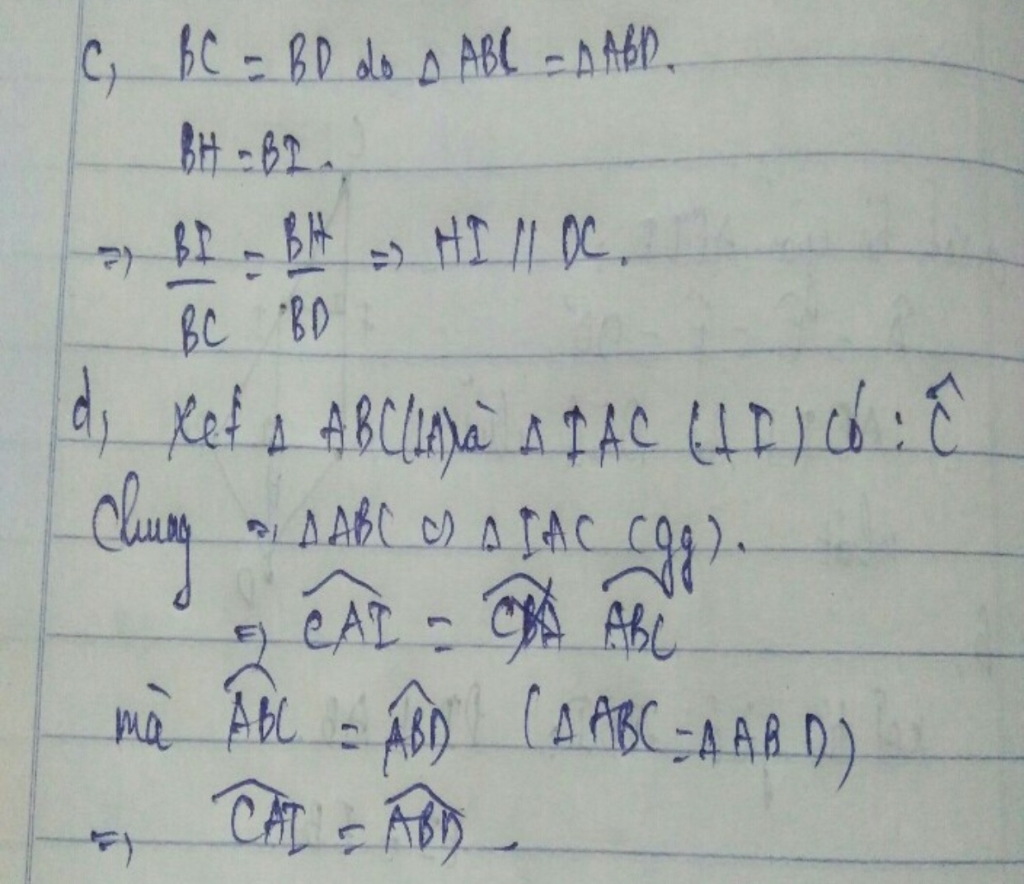 c, BC = BD do Δ ABC = Δ ABD.
BH = BI.
=> BI/BC = BH/BD => HI // DC.
d, Xét Δ ABC (⊥A) và Δ IAC (⊥I) có : Ĉ
Chung => Δ ABC ∽ Δ IAC (gg).
=> \widehat{CAI} = \widehat{ABC}
mà \widehat{ABC} = \widehat{ABD} (Δ ABC = Δ ABD)
=> \widehat{CAI} = \widehat{ABD}.